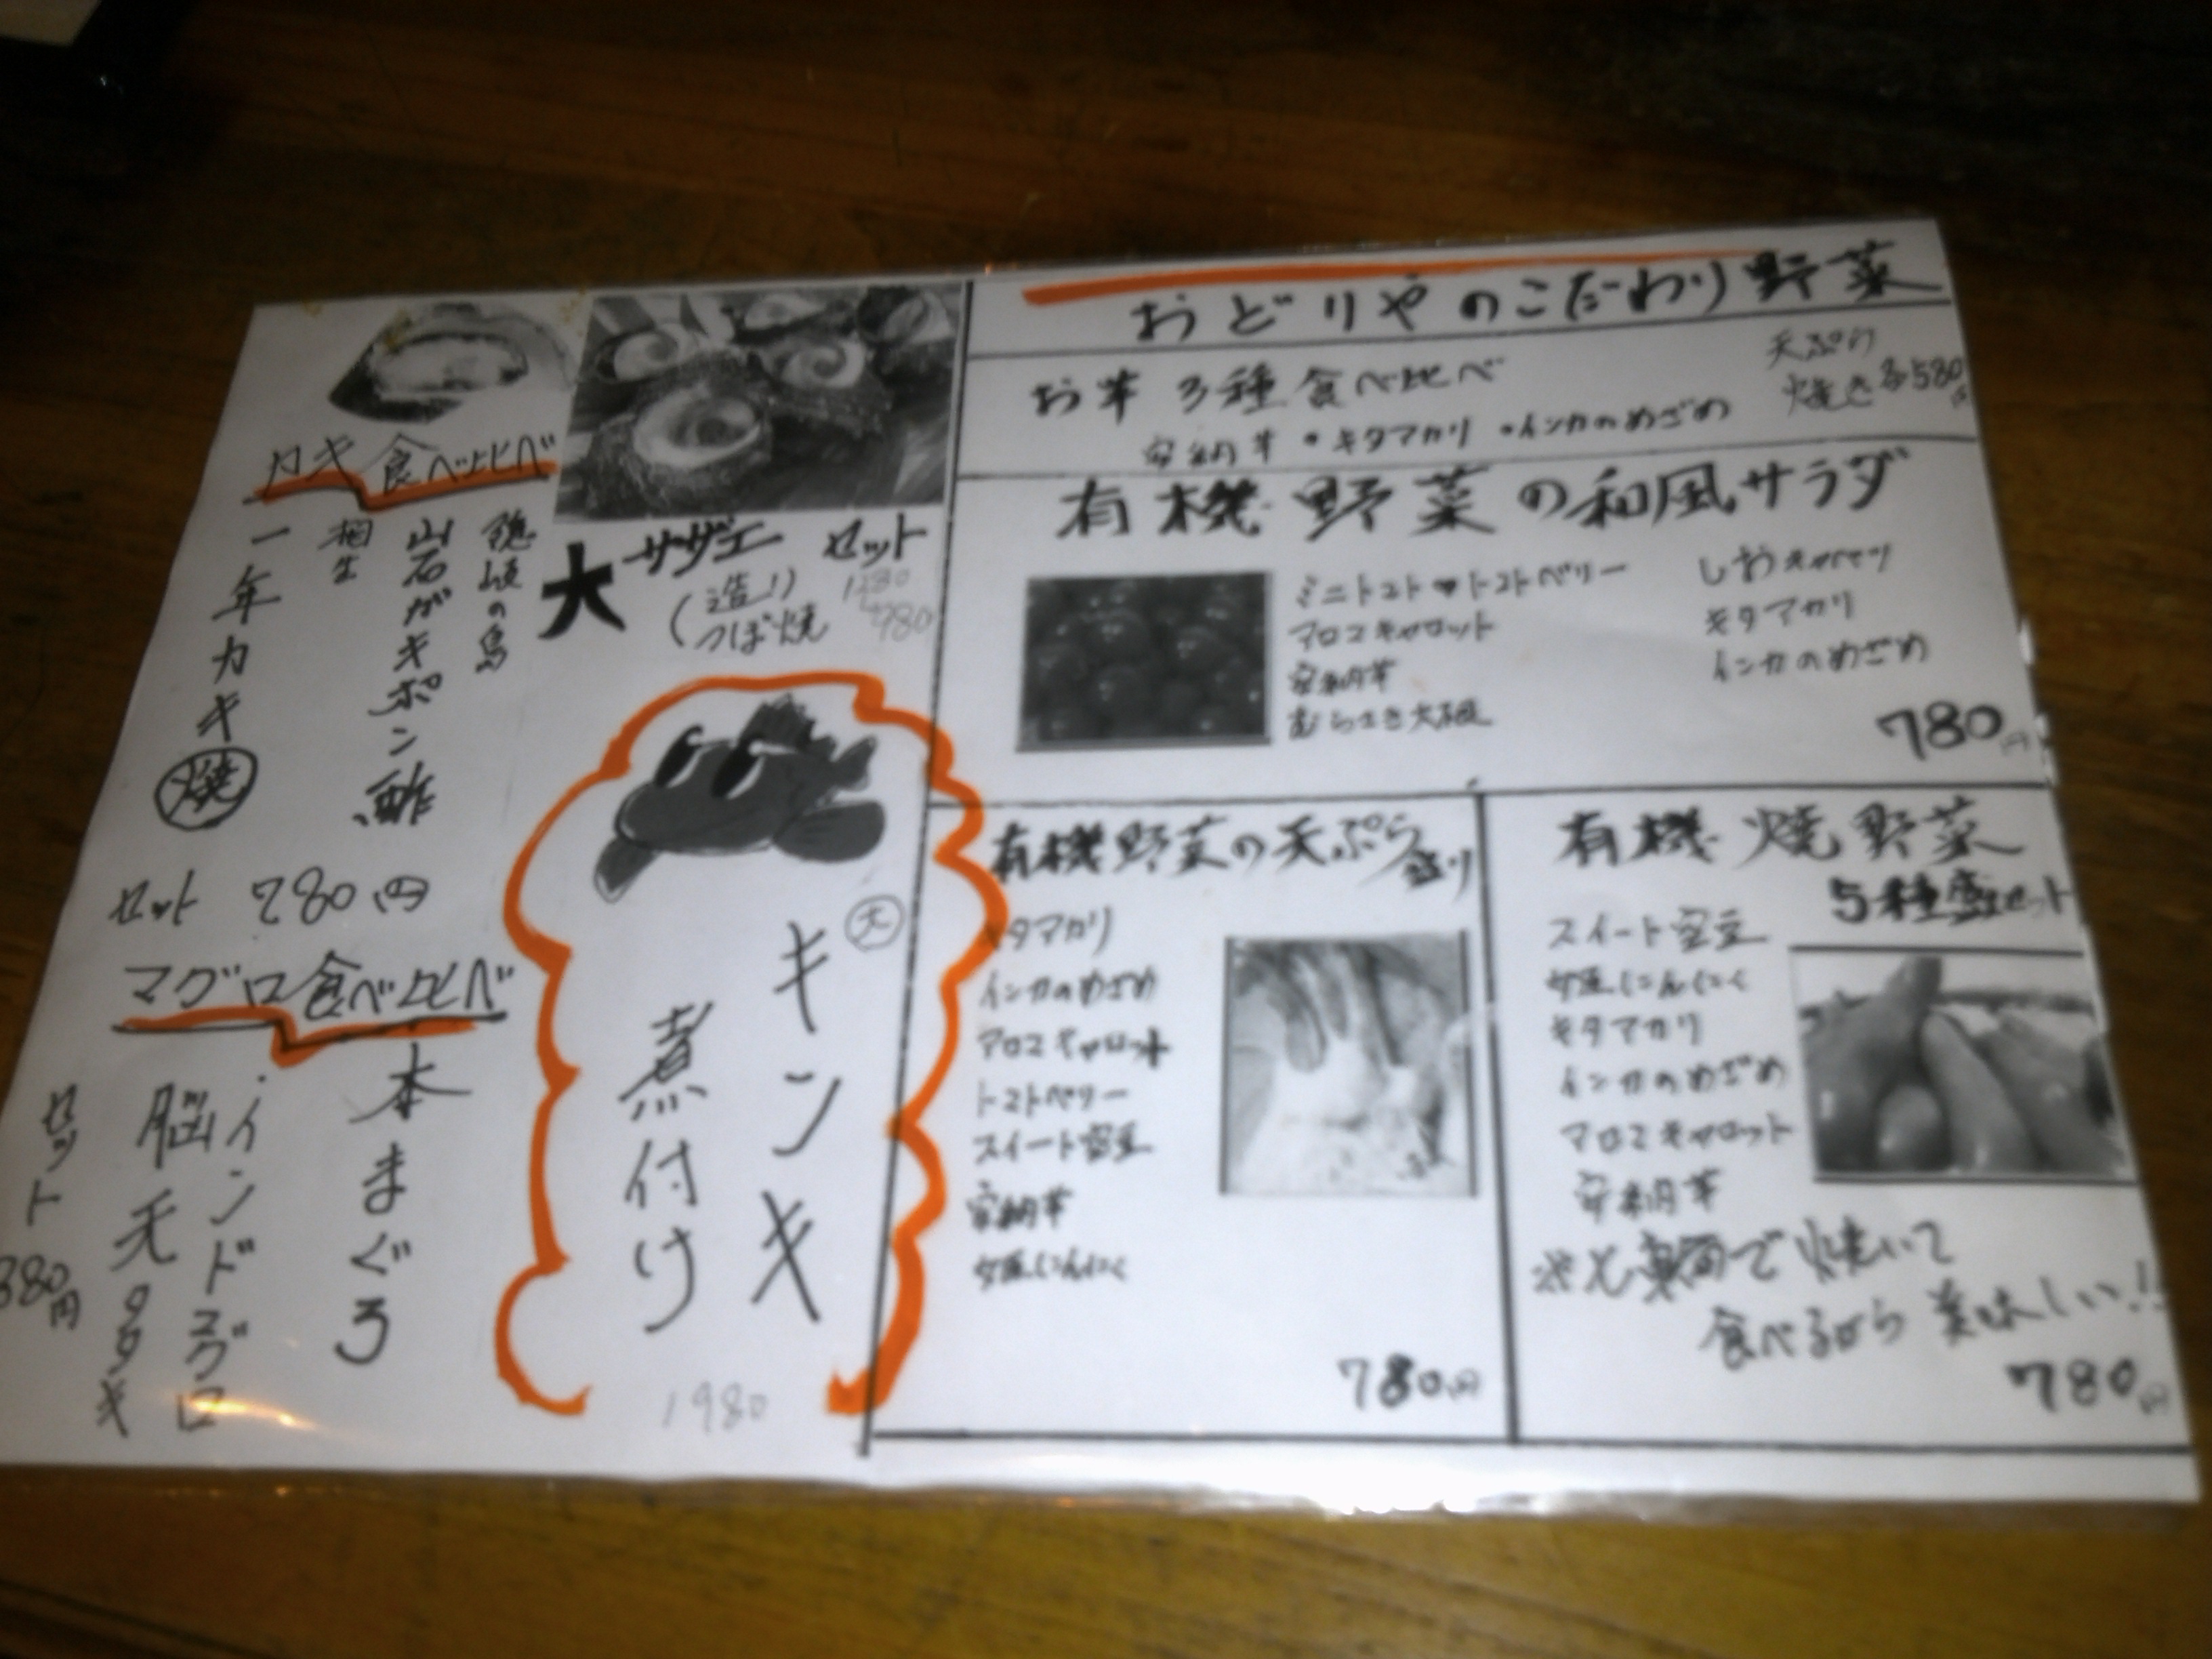 カキ食べ比べ
隠岐の島
岩ガキポン酢
相生
一年カキ 焼
セット 780円
マグロ食べ比べ
本まぐろ
インドマグロ
脳天のタタキ
セット
大サザエ セット
(造り
つぼ焼
780
大
キンキ
煮付け
1980
おどりやのこだわり野菜
お芋3種食べ比べ
天ぷら
焼き各580円
安納芋・キタアカリ・インカのめざめ
有機野菜の和風サラダ
ミニトマト♥トマトベリー
アロマキャロット
安納芋
むらさき大根
しおキャベツ
キタアカリ
インカのめざめ
780円
有機野菜の天ぷら盛り
キタアカリ
インカのめざめ
アロマキャロット
トマトベリー
スイート空豆
安納芋
にんにく
780円
有機焼野菜
5種盛セット
スイート空豆
にんにく
キタアカリ
インカのめざめ
アロマキャロット
安納芋
で焼いて
食べるから美味しい!!
780円